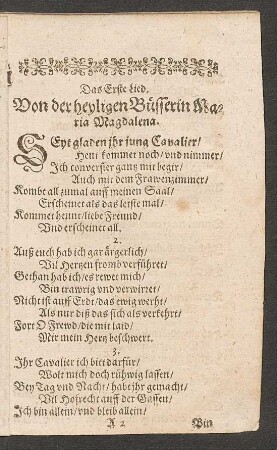 Das Erste Lied.
Von der heyligen Büsserin Ma-
ria Magdalena.
SEyt gladen jhr jung Cavalier/
Heut kommet noch/ vnd nimmer/
Ich converster gantz mit begir/
Auch mit dem Frawenzimmer/
Kombt all zumal auff meinen Saal/
Erscheinet als das letste mal/
Kommet heunt/ liebe Freund/
Vnd erscheinet all.
2.
Auß euch hab ich gar ärgerlich/
Vil Hertzen fromb verführet/
Gethan hab ich/ es rewet mich/
Bin trawrig vnd verwirret/
Nicht ist auff Erdt/ das ewig werht/
Als nur diß das sich als verkehrt/
Fort O Frewd/ die mit laid/
Mir mein Hertz beschwert.
3.
Ihr Cavalier ich bitt darfür/
Wolt mich doch rühwig lassen/
Bey Tag vnd Nacht/ habt jhr gemacht/
Vil Hofrecht auff der Gassen/
Ich bin allein/ vnd bleib allein/
A 2 Bin